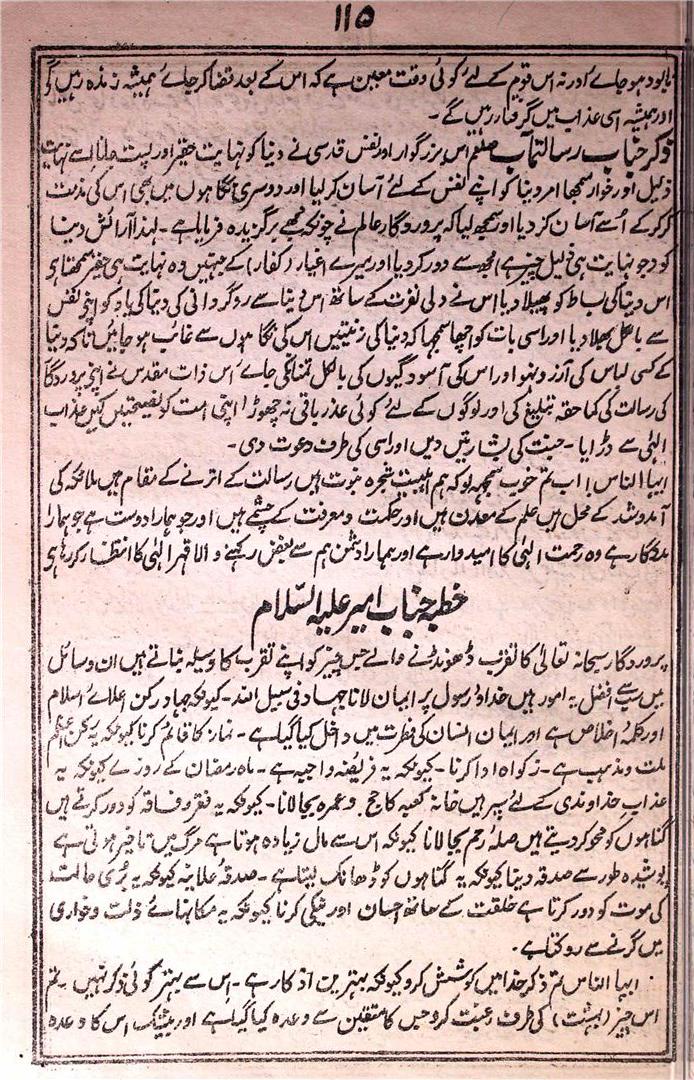 ۱۱۵
نابود ہو جائے اور نہ اس قوم کے لئے کوئی وقت معین ہے کہ اس کے بعد قضا کر جائے ہمیشہ زندہ رہیں گے
اور ہمیشہ اسی عذاب میں گرفتار رہیں گے۔
ذکر جناب رسالتمآب صلعم اس بزرگوار اور نفس قدسی نے دنیا کو نہایت حقیر اور پست جانا اسے نہایت
ذلیل اور خوار سمجھا امر دنیا کو اپنے نفس کے لئے آسان کر لیا اور دوسری نگاہوں میں بھی اس کی مذمت
کر کر کے اُسے آسان کر دیا اور سمجھ لیا کہ پروردگار عالم نے چونکہ مجھے برگزیدہ فرمایا ہے۔ لہذا آرائش دنیا
کو (جو نہایت ہی ذلیل چیز ہے) مجھ سے دور کر دیا اور میرے اغیار (کفار) کے جنہیں وہ نہایت ہی حقیر سمجھتا ہے
اس دنیا کی بساط کو پھیلا دیا اس نے دلی نفرت کے ساتھ اس دنیا سے روگردانی کی دنیا کی یاد کو اپنے نفس
سے بالکل بھلا دیا اور اسی بات کو اچھا سمجھا کہ دنیا کی زینتیں اس کی نگاہوں سے غائب ہو جائیں تاکہ دنیا
کے کسی لباس کی آرزو نہ ہو اور اس کی آسودگیوں کی بالکل تمنا نہ کی جائے اس ذات مقدس نے اپنے پروردگار
کی رسالت کی کما حقہ تبلیغ کی اور لوگوں کے لئے کوئی عذر باقی نہ چھوڑا اپنی امت کو نصیحتیں کیں عذاب
الہٰی سے ڈرایا۔ جنت کی بشارتیں دیں اور اسی کی طرف دعوت دی۔
ایہا الناس! اب تم خوب سمجھ لو کہ ہم اہلبیت شجرہ نبوت ہیں رسالت کے اترنے کے مقام ہیں ملائکہ کی
آمد و شد کے محل ہیں علم کے معدن ہیں اور حکمت و معرفت کے چشمے ہیں اور جو ہمارا دوست ہے جو ہمارا
مددگار ہے وہ رحمت الہٰی کا امیدوار ہے اور ہمارا دشمن ہم سے بغض رکھنے والا قہر الہٰی کا انتظار کر رہا ہے
خطبہ جناب امیر علیہ السّلام
پروردگار سبحانہ تعالیٰ کا تقرب ڈھونڈنے والے جس چیز کو اپنے تقرب کا وسیلہ بناتے ہیں ان وسائل
میں سب سے افضل یہ امور ہیں خدا و رسول پر ایمان لانا جہاد فی سبیل اللہ۔ کیونکہ جہاد رکن اعلائے اسلام
اور کلمۂ اخلاص ہے اور ایمان انسان کی فطرت میں داخل کیا گیا ہے۔ نماز کا قائم کرنا کیونکہ یہ رکن اعظم
ملت و مذہب ہے۔ زکواہ ادا کرنا۔ کیونکہ یہ فریضہ واجبہ ہے۔ ماہ رمضان کے روزے کیونکہ یہ
عذاب خداوندی کے لئے سپر ہیں خانہ کعبہ کا حج و عمرہ بجا لانا۔ کیونکہ یہ فقر و فاقہ کو دور کرتے ہیں
گناہوں کو محو کر دیتے ہیں صلۂ رحم بجا لانا کیونکہ اس سے مال زیادہ ہوتا ہے مرگ میں تاخیر ہوتی ہے
پوشیدہ طور سے صدقہ دینا کیونکہ یہ گناہوں کو ڈھانک لیتا ہے۔ صدقہ علانیہ کیونکہ یہ بُری حالت
کی موت کو دور کرتا ہے خلقت کے ساتھ احسان اور نیکی کرنا کیونکہ یہ مکانہائے ذلت و خواری
میں گرنے سے روکتا ہے۔
ایہا الناس تم ذکر خدا میں کوشش کرو کیونکہ بہترین اذکار ہے۔ اس سے بہتر کوئی ذکر نہیں۔ تم
اس چیز (بہشت) کی طرف رغبت کرو جس کا متقین سے وعدہ کیا گیا ہے اور بیشک اس کا وعدہ